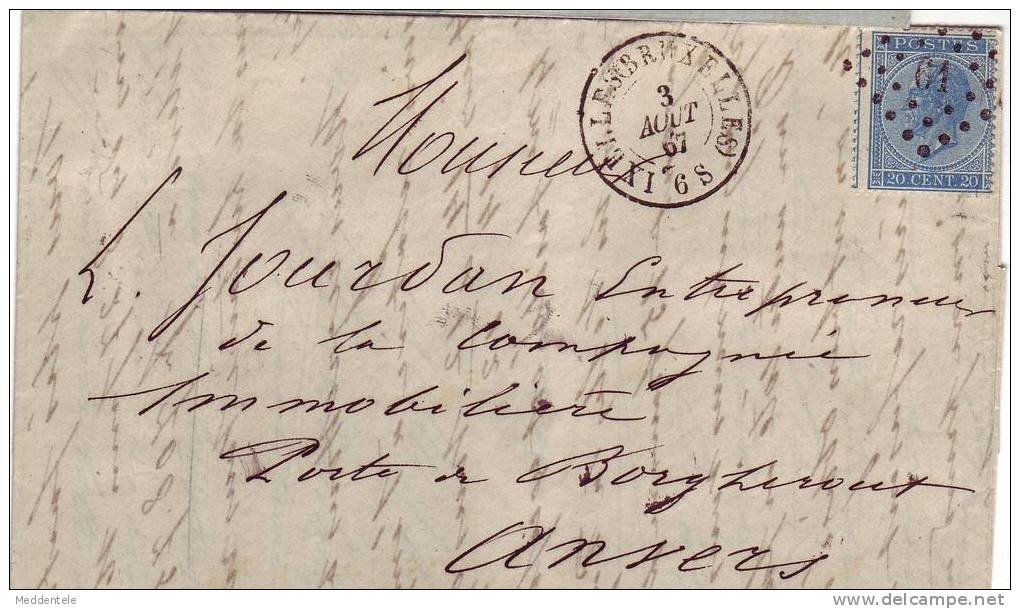 POSTES
61
20 CENT. 20
IXELLES (BRUXELLES)
3
AOUT
67
6 S
Monsieur
L. Jourdan Entrepreneur
de la Compagnie
Immobilière
Porte de Borgherout
Anvers
Meddentele
delcampe.net